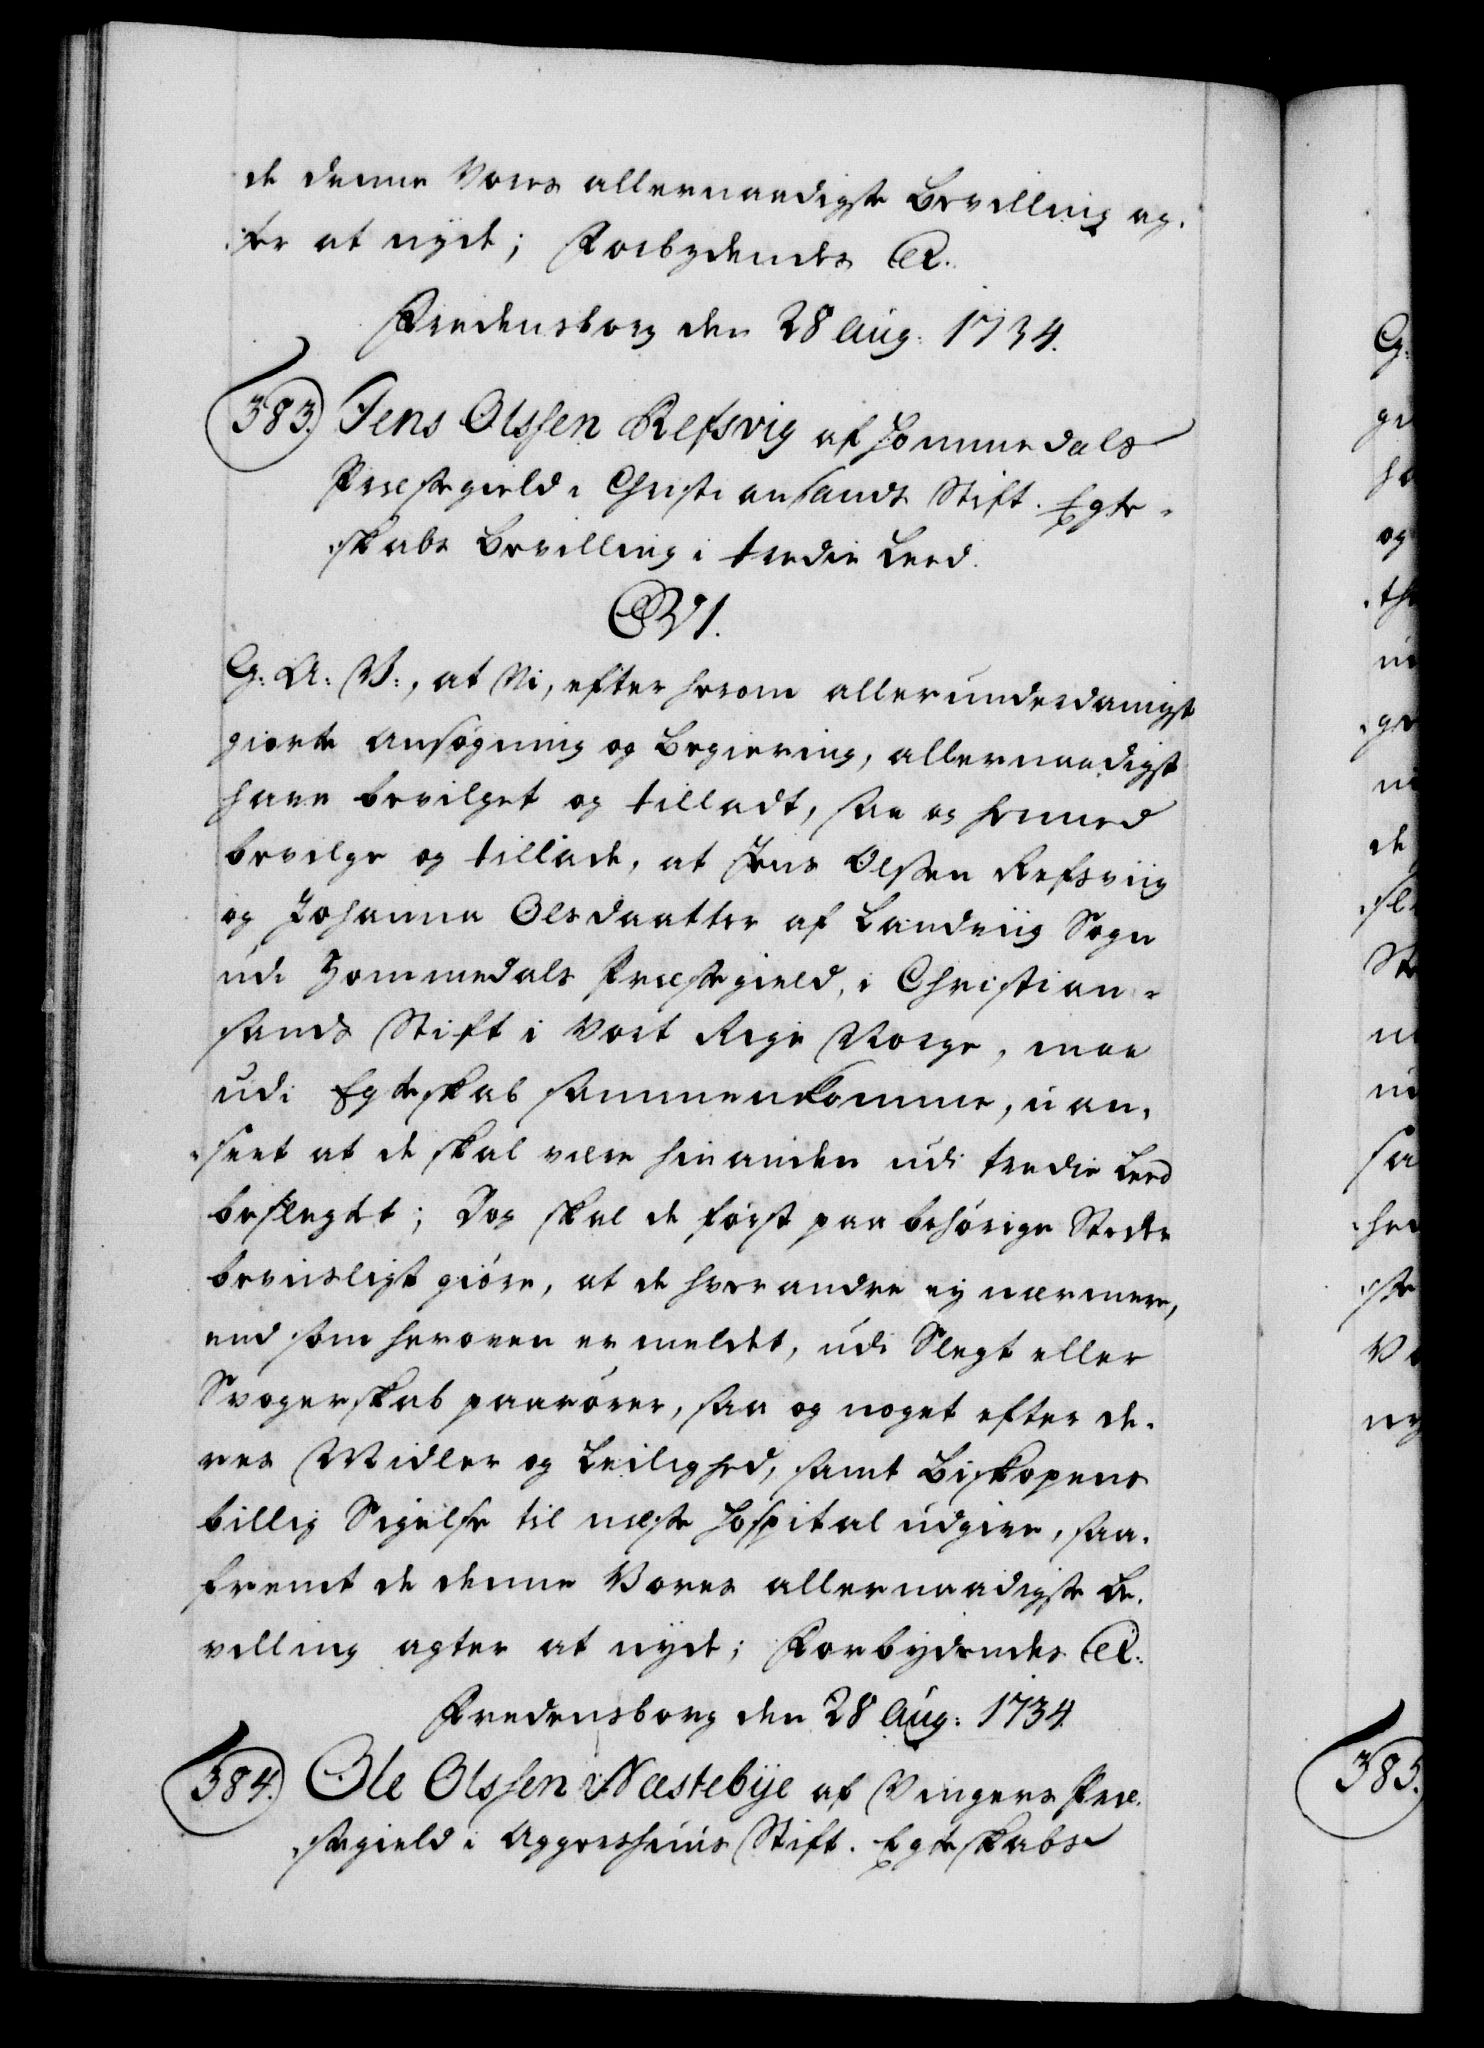 de denne Vores allernaadigste Bevilling ag¬
ter at nyde; Forbydendes &c.
Fredensborg den 28 Aug: 1734.
383. Jens Olssen Refsvig af Hommedals
Præstegield i Christiansands Stift. Egte¬
skabs Bevilling i tredie Leed.
C. VI.
G: A: V:, at Vi, efter herom allerunderdanigst
giorte Ansøgning og Begiering, allernaadigst
have bevilget og tilladt, saa og hermed
bevilge og tillade, at Jens Olssen Refsviig
og Johanna Olsdaatter af Landviig Sogn
udi Hommedals Præstegield, i Christian¬
sands Stift i Vort Rige Norge, maa
udi Egteskab sammenkomme, uan¬
seet at de skal være hinanden udi tredie Leed
beslegtet; Dog skal de først paa behørige Steder
beviisligt giøre, at de hverandre ey nærmere,
end som heroven er meldet, udi Slegt eller
Svogerskab paarører, saa og noget efter de¬
res Midler og Leilighed, samt Biskopens
billig Sigelse til næste Hospital udgive, saa¬
fremt de denne Vores allernaadigste Be¬
villing agter at nyde; Forbydendes &c:
Fredensborg den 28 Aug: 1734
384. Ole Olssen Næstebye af Vingers Præ¬
stegield i Aggershuus Stift. Egteskabs
G:
og
de
385.